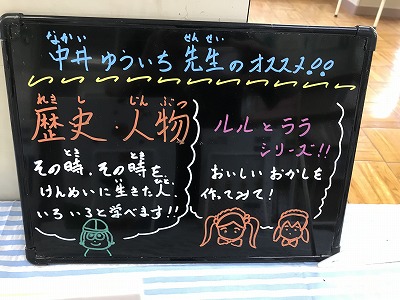 なかい せんせい
中井 ゆういち 先生のオススメ!!
れきし じんぶつ
歴史・人物
とき とき
その時、その時を、
けんめいに生きた人びと
いろいろと学べます!!
ルルとララ
シリーズ!!
おいしい おかしを
作ってみて!